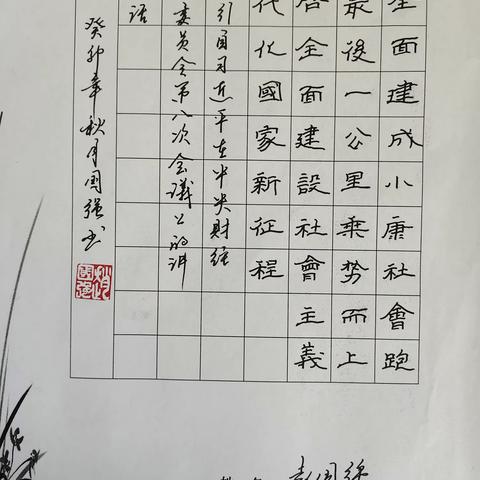 全面建成小康社會跑
最後一公里乘势而上
全面建設社會主義
代化國家新征程
引自习近平在中央财经
委员会第八次会议上的讲
话
癸卯年秋月国强书